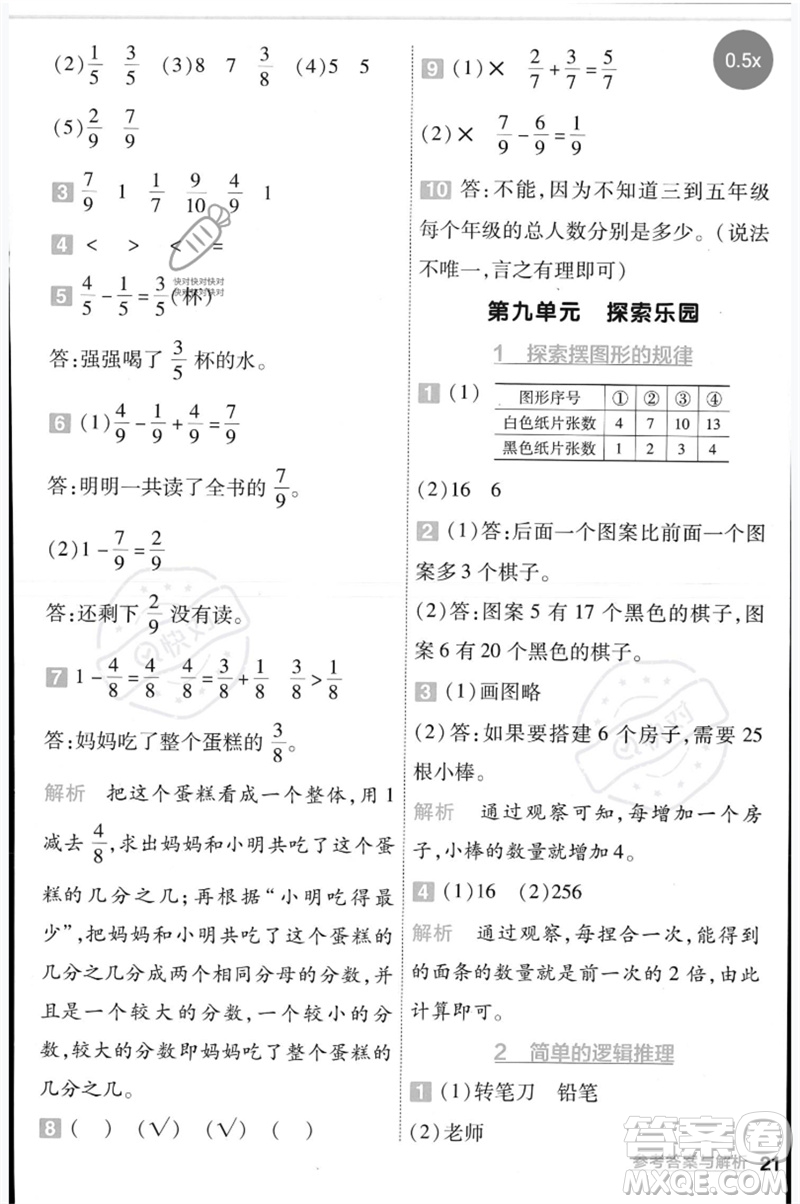 (2)1/5 3/5 (3)8 7 3/8 (4)5 5
(5)2/9 7/9
3 7/9 1 1/7 9/10 4/9 1
4 < > < =
5 4/5-1/5=3/5(杯)
答:强强喝了3/5杯的水。
6 (1)4/9-1/9+4/9=7/9
答:明明一共读了全书的7/9。
(2)1-7/9=2/9
答:还剩下2/9没有读。
7 1-4/8=4/8 4/8=3/8+1/8 3/8>1/8
答:妈妈吃了整个蛋糕的3/8。
解析 把这个蛋糕看成一个整体,用1
减去4/8,求出妈妈和小明共吃了这个蛋
糕的几分之几;再根据“小明吃得最
少”,把妈妈和小明共吃了这个蛋糕的
几分之几分成两个相同分母的分数,并
且是一个较大的分数,一个较小的分数
,较大的分数即妈妈吃了整个蛋糕的几
分之几。
8 ( ) (√) (√) ( )
9 (1)× 2/7+3/7=5/7
(2)× 7/9-6/9=1/9
10 答:不能,因为不知道三到五年级
每个年级的总人数分别是多少。(说法
不唯一,言之有理即可)
第九单元 探索乐园
1 探索摆图形的规律
1 (1) 图形序号 ① ② ③ ④
白色纸片张数 4 7 10 13
黑色纸片张数 1 2 3 4
(2)16 6
2 (1)答:后面一个图案比前面一个图
案多3个棋子。
(2)答:图案5有17个黑色的棋子,图
案6有20个黑色的棋子。
3 (1)画图略
(2)答:如果要搭建6个房子,需要25
根小棒。
解析 通过观察可知,每增加一个房
子,小棒的数量就增加4。
4 (1)16 (2)256
解析 通过观察,每捏合一次,能得到
的面条的数量就是前一次的2倍,由此
计算即可。
2 简单的逻辑推理
1 (1)转笔刀 铅笔
(2)老师
参考答案与解析 21
0.5x
快对快对快对
快对快对快对
快对
快对
答案圈